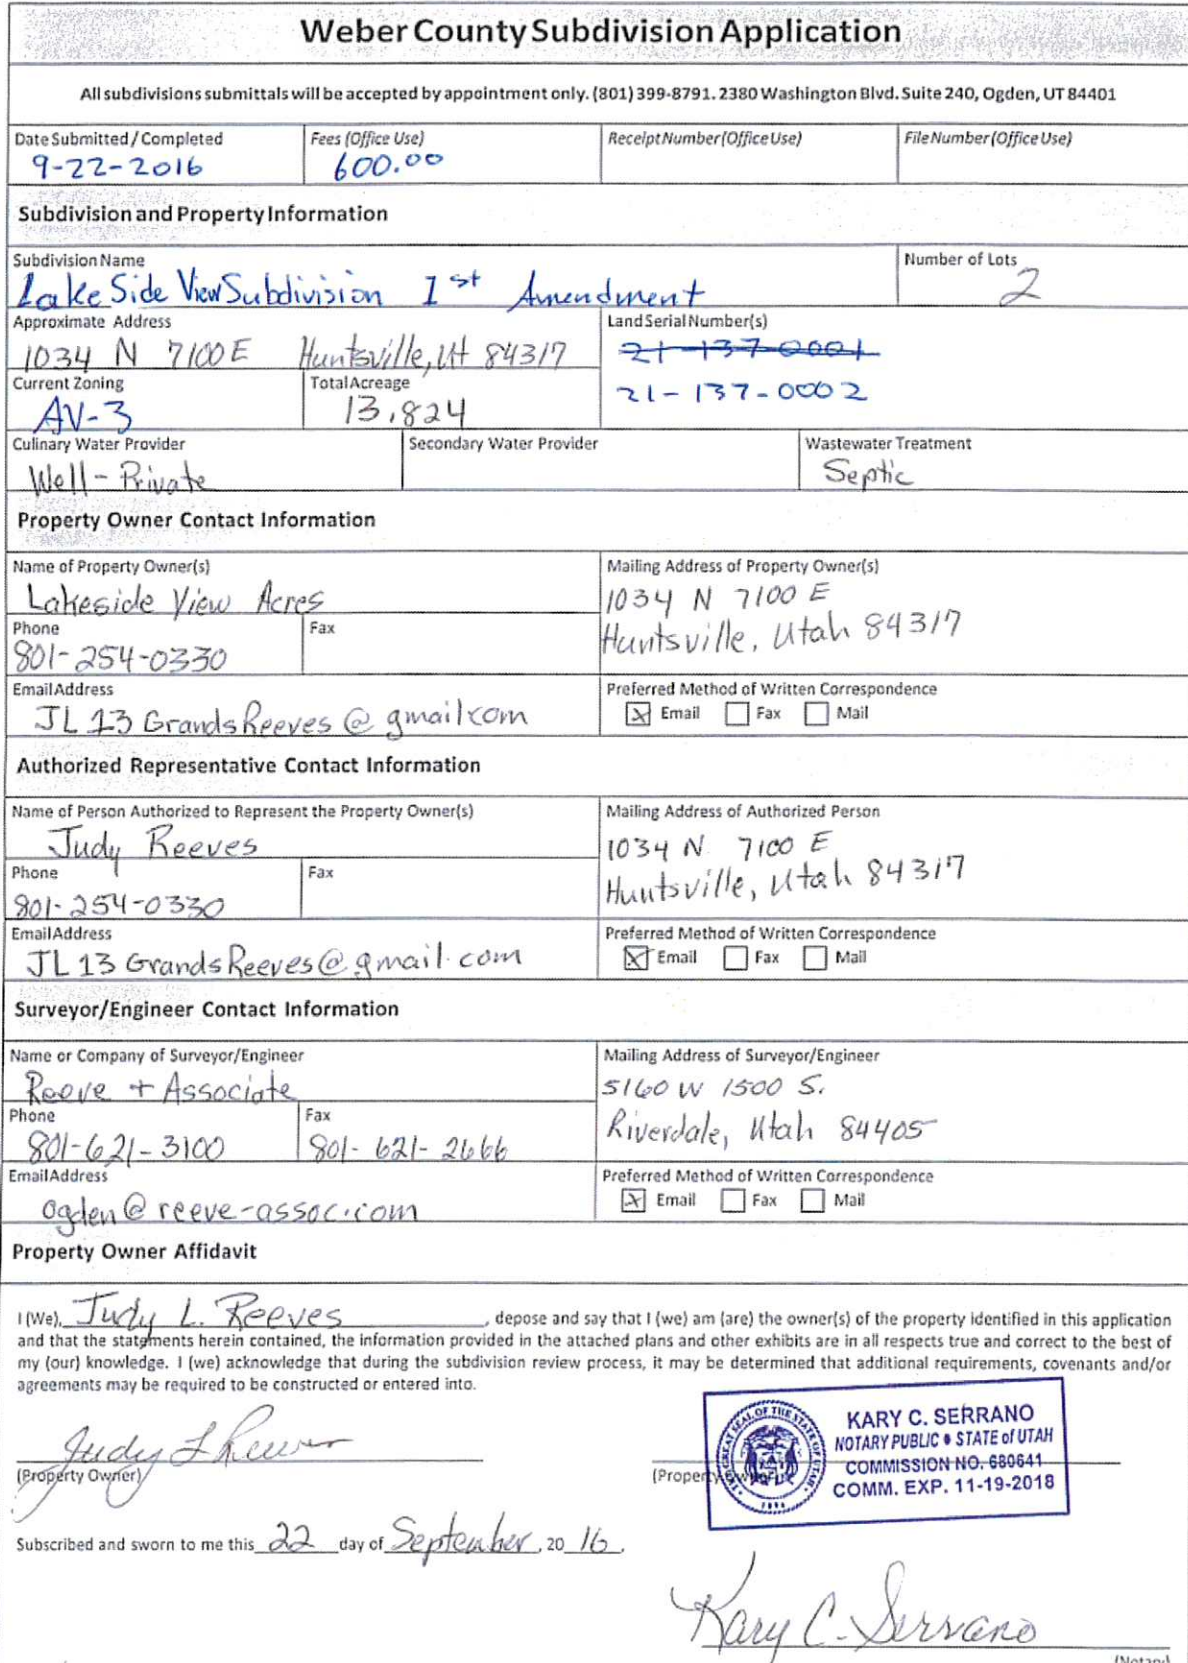 Weber County Subdivision Application
All subdivisions submittals will be accepted by appointment only. (801) 399-8791. 2380 Washington Blvd. Suite 240, Ogden, UT 84401
Date Submitted / Completed
9-22-2016
Fees (Office Use)
600.00
Receipt Number (Office Use)
File Number (Office Use)
Subdivision and Property Information
Subdivision Name
Lake Side View Subdivision 1st Amendment
Number of Lots
2
Approximate Address
1034 N 7100 E Huntsville, Ut 84317
Land Serial Number(s)
21-137-0001
21-137-0002
Current Zoning
AV-3
Total Acreage
13.824
Culinary Water Provider
Well - Private
Secondary Water Provider
Wastewater Treatment
Septic
Property Owner Contact Information
Name of Property Owner(s)
Lakeside View Acres
Mailing Address of Property Owner(s)
1034 N 7100 E
Huntsville, Utah 84317
Phone
801-254-0330
Fax
Email Address
JL13GrandsReeves@gmail.com
Preferred Method of Written Correspondence
Email Fax Mail
Authorized Representative Contact Information
Name of Person Authorized to Represent the Property Owner(s)
Judy Reeves
Mailing Address of Authorized Person
1034 N 7100 E
Huntsville, Utah 84317
Phone
801-254-0330
Fax
Email Address
JL13GrandsReeves@gmail.com
Preferred Method of Written Correspondence
Email Fax Mail
Surveyor/Engineer Contact Information
Name or Company of Surveyor/Engineer
Reeve + Associate
Mailing Address of Surveyor/Engineer
5160 W 1500 S.
Riverdale, Utah 84405
Phone
801-621-3100
Fax
801-621-2666
Email Address
ogden@reeve-assoc.com
Preferred Method of Written Correspondence
Email Fax Mail
Property Owner Affidavit
I (We), Judy L. Reeves, depose and say that I (we) am (are) the owner(s) of the property identified in this application
and that the statements herein contained, the information provided in the attached plans and other exhibits are in all respects true and correct to the best of
my (our) knowledge. I (we) acknowledge that during the subdivision review process, it may be determined that additional requirements, covenants and/or
agreements may be required to be constructed or entered into.
Judy L Reeves
(Property Owner)
(Property Owner)
THE GREAT SEAL OF THE STATE OF UTAH
1896
KARY C. SERRANO
NOTARY PUBLIC • STATE of UTAH
COMMISSION NO. 680641
COMM. EXP. 11-19-2018
Subscribed and sworn to me this 22 day of September, 20 16.
Kary C. Serrano
(Notary)